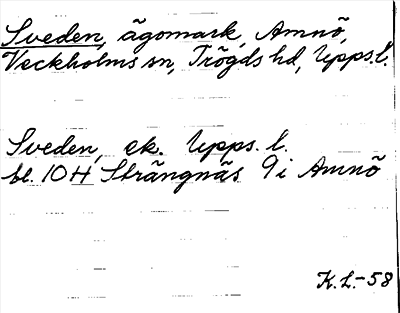 Sveden, ägomark, Amnö,
Veckholms sn, Trögds hd, Upps.l.
Sveden, ek. Upps. l.
bl. 10H Strängnäs 9i Amnö
K.L.-58